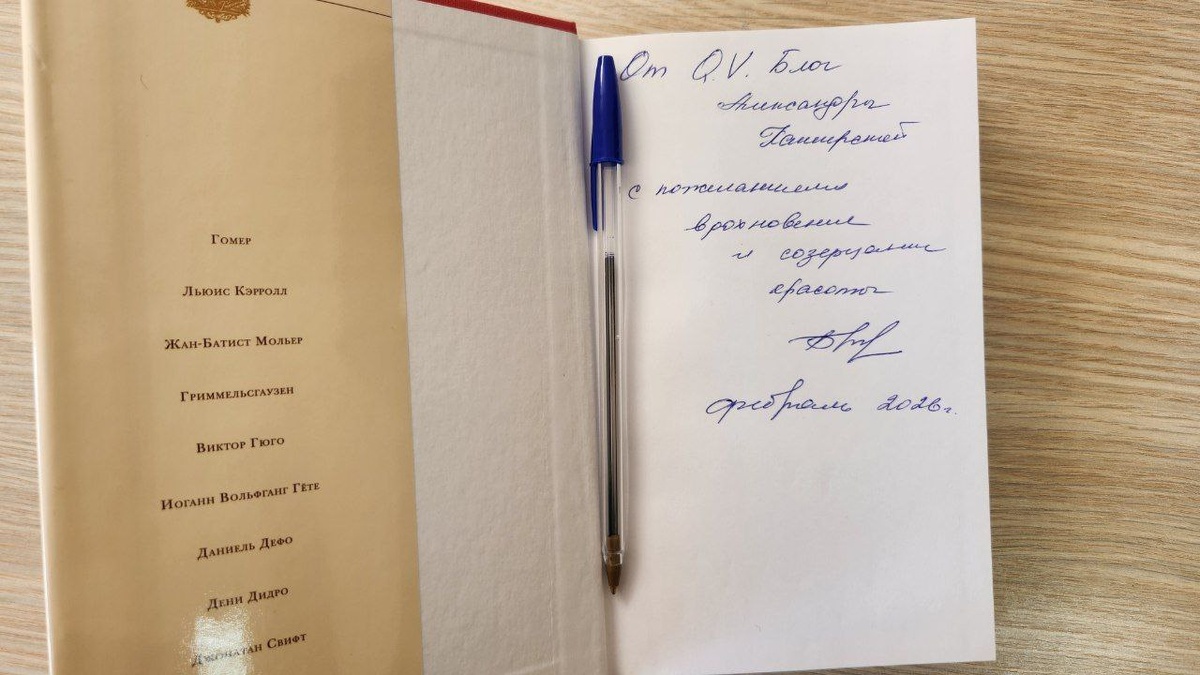 Гомер
Льюис Кэрролл
Жан-Батист Мольер
Гриммельсгаузен
Виктор Гюго
Иоганн Вольфганг Гёте
Даниель Дефо
Дени Дидро
Джонатан Свифт
От Q.V. Блог
Александры
с пожеланием
вдохновения
и созерцания
красоты
февраль 2026г.